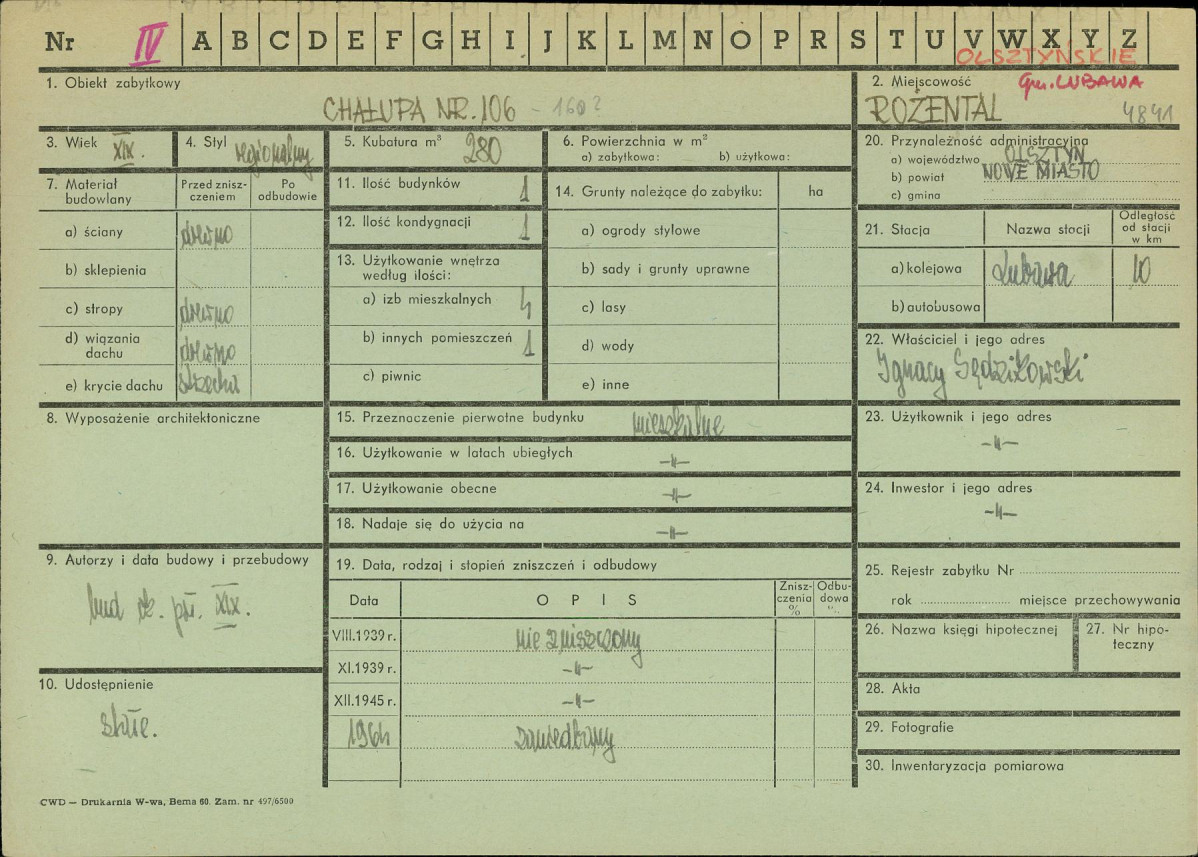 Nr IV A B C D E F G H I J K L M N O P R S T U V W X Y Z
OLSZTYŃSKIE
1. Obiekt zabytkowy
CHAŁUPA NR. 106 - 160?
2. Miejscowość
Gm. LUBAWA
ROŻENTAL 4841
3. Wiek XIX.
4. Styl regionalny
5. Kubatura m³ 280
6. Powierzchnia w m²
a) zabytkowa: b) użytkowa:
7. Materiał budowlany
Przed zniszczeniem
Po odbudowie
a) ściany drewno
b) sklepienia
c) stropy drewno
d) wiązania dachu drewno
e) krycie dachu strzecha
8. Wyposażenie architektoniczne
9. Autorzy i data budowy i przebudowy
bud. poł. XIX.
10. Udostępnienie
stałe.
11. Ilość budynków 1
12. Ilość kondygnacji 1
13. Użytkowanie wnętrza
według ilości:
a) izb mieszkalnych 4
b) innych pomieszczeń 1
c) piwnic
14. Grunty należące do zabytku: ha
a) ogrody stylowe
b) sady i grunty uprawne
c) lasy
d) wody
e) inne
15. Przeznaczenie pierwotne budynku mieszkalne
16. Użytkowanie w latach ubiegłych -"-
17. Użytkowanie obecne -"-
18. Nadaje się do użycia na -"-
19. Data, rodzaj i stopień zniszczeń i odbudowy
Data OPIS Zniszczenia % Odbudowa %
VIII.1939 r. nie zniszczony
XI.1939 r. -"-
XII.1945 r. -"-
1964 zaniedbany
20. Przynależność administracyjna
a) województwo OLSZTYN
b) powiat NOWE MIASTO
c) gmina
21. Stacja Nazwa stacji Odległość od stacji w km
a) kolejowa Lubawa 10
b) autobusowa
22. Właściciel i jego adres
Ignacy Sędzikowski
23. Użytkownik i jego adres
-"-
24. Inwestor i jego adres
-"-
25. Rejestr zabytku Nr
rok miejsce przechowywania
26. Nazwa księgi hipotecznej
27. Nr hipoteczny
28. Akta
29. Fotografie
30. Inwentaryzacja pomiarowa
CWD — Drukarnia W-wa, Bema 60. Zam. nr 497/6500